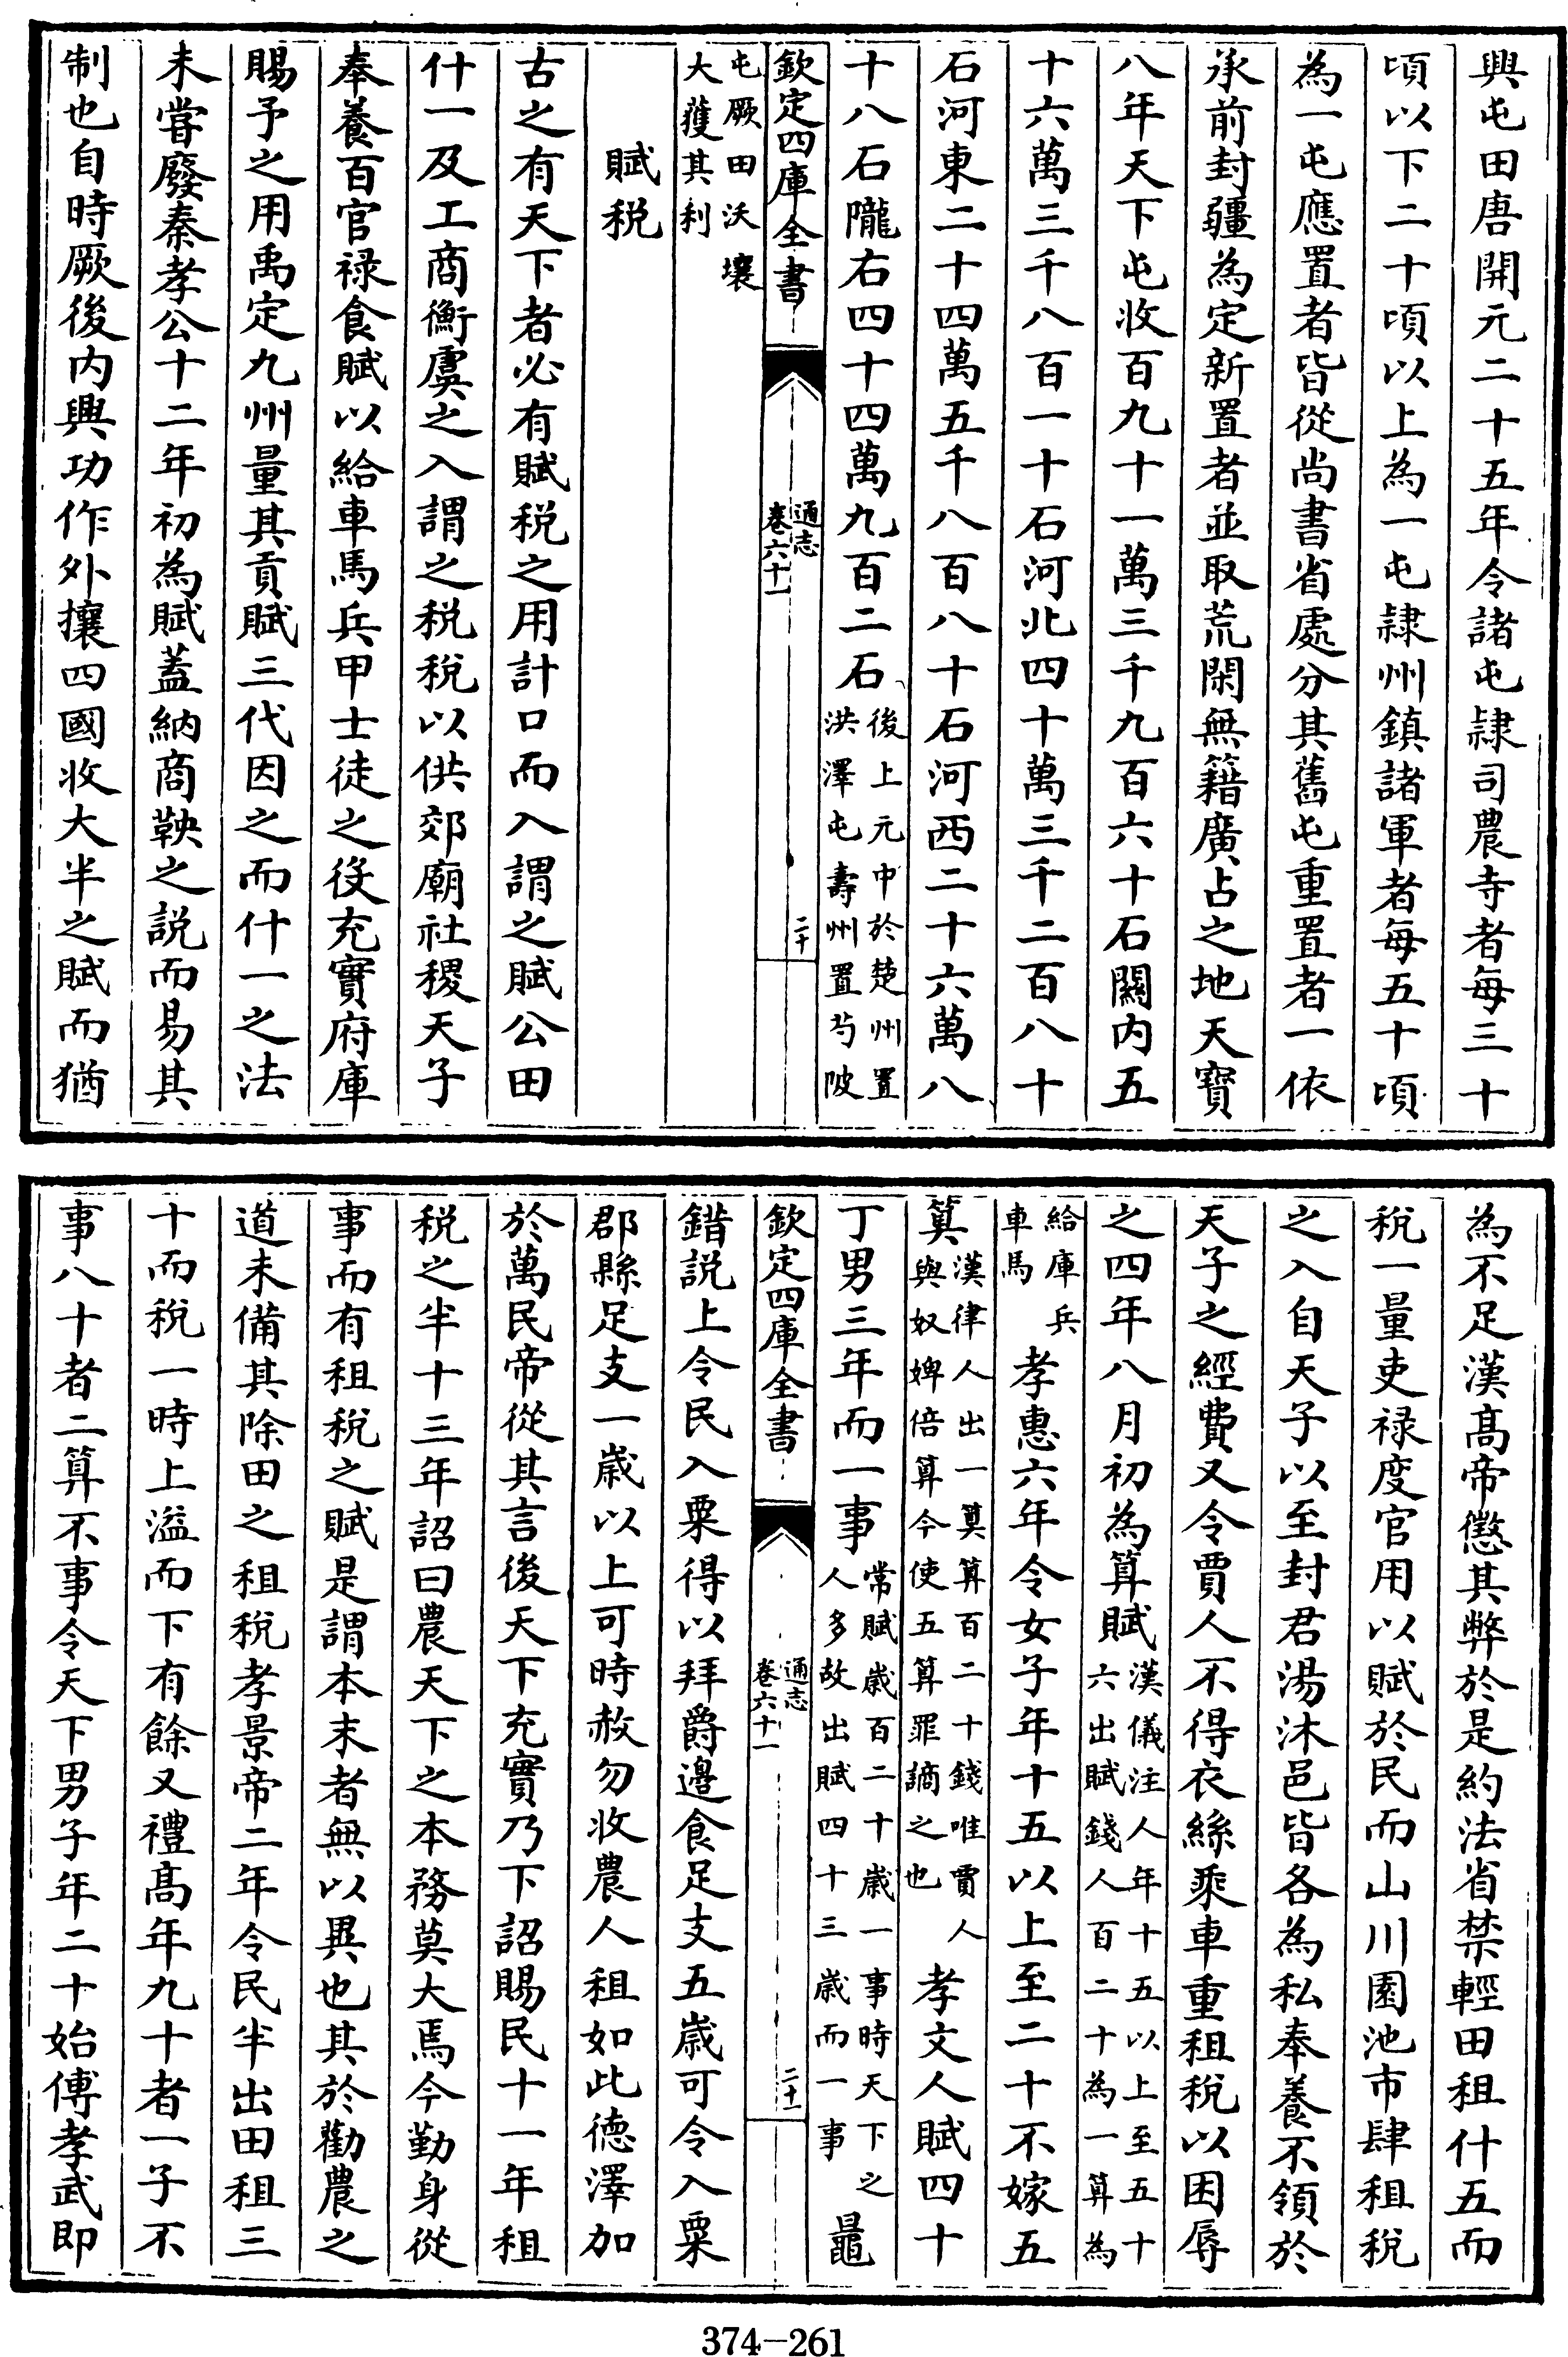 興屯田唐開元二十五年令諸屯隷司農寺者每三十
頃以下二十頃以上為一屯隷州鎮諸軍者每五十頃
為一屯應置者皆從尚書省處分其舊屯重置者一依
承前封疆為定新置者並取荒閑無籍廣占之地天寶
八年天下屯收百九十一萬三千九百六十石關内五
十六萬三千八百一十石河北四十萬三千二百八十
石河東二十四萬五千八百八十石河西二十六萬八
十八石隴右四十四萬九百二石
後上元中於楚州置
洪澤屯壽州置芍陂
欽定四庫全書
通志
卷六十一
二十
屯厥田沃壤
大獲其利
賦税
古之有天下者必有賦税之用計口而入謂之賦公田
什一及工商衡虞之入謂之税税以供郊廟社稷天子
奉養百官禄食賦以給車馬兵甲士徒之役充實府庫
賜予之用禹定九州量其貢賦三代因之而什一之法
未嘗廢秦孝公十二年初為賦蓋納商鞅之説而易其
制也自時厥後内興功作外攘四國收大半之賦而猶
為不足漢髙帝懲其弊於是約法省禁輕田租什五而
税一量吏禄度官用以賦於民而山川園池市肆租税
之入自天子以至封君湯沐邑皆各為私奉養不領於
天子之經費又令賈人不得衣絲乘車重租税以困辱
之四年八月初為算賦
漢儀注人年十五以上至五十
六出賦錢人百二十為一算為
給庫兵
車馬
孝惠六年令女子年十五以上至二十不嫁五
算
漢律人出一算算百二十錢唯賈人
與奴婢倍算今使五算罪謫之也
孝文人賦四十
丁男三年而一事
常賦歲百二十歲一事時天下之
人多故出賦四十三歲而一事
鼂
欽定四庫全書
通志
卷六十一
二十一
錯説上令民入粟得以拜爵邊食足支五歲可令入粟
郡縣足支一歲以上可時赦勿收農人租如此德澤加
於萬民帝從其言後天下充實乃下詔賜民十一年租
税之半十三年詔曰農天下之本務莫大焉今勤身從
事而有租税之賦是謂本末者無以異也其於勸農之
道未備其除田之租税孝景帝二年令民半出田租三
十而税一時上溢而下有餘又禮髙年九十者一子不
事八十者二算不事令天下男子年二十始傅孝武即
374-261